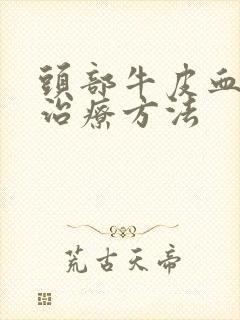 頭部牛皮血
治療方法
荒古天帝